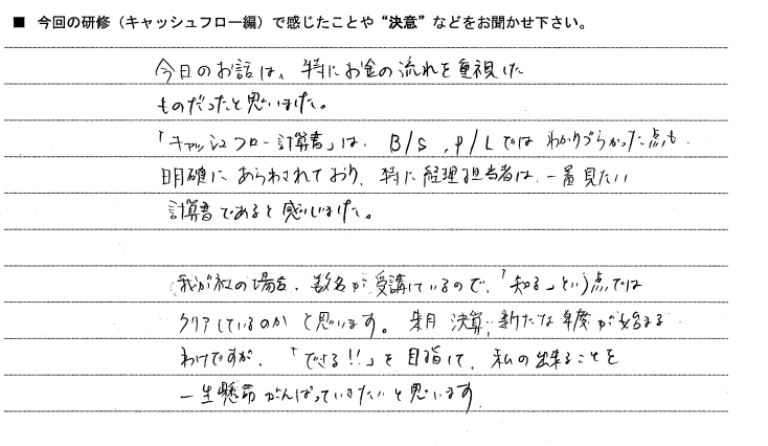 ■ 今回の研修（キャッシュフロー編）で感じたことや“決意”などをお聞かせ下さい。
今日のお話は、特にお金の流れを重視した
ものだったと思いました。
「キャッシュフロー計算書」は、B/S、P/Lではわかりづらかった点も
明確にあらわされており、特に経理担当者は、一番見たい
計算書であると感じました。
我が社の場合、数名が受講しているので、「知る」という点では
クリアしているのかと思います。来月決算、新たな年度が始まる
わけですが、「できる!!」を目指して、私の出来ることを
一生懸命がんばっていきたいと思います。